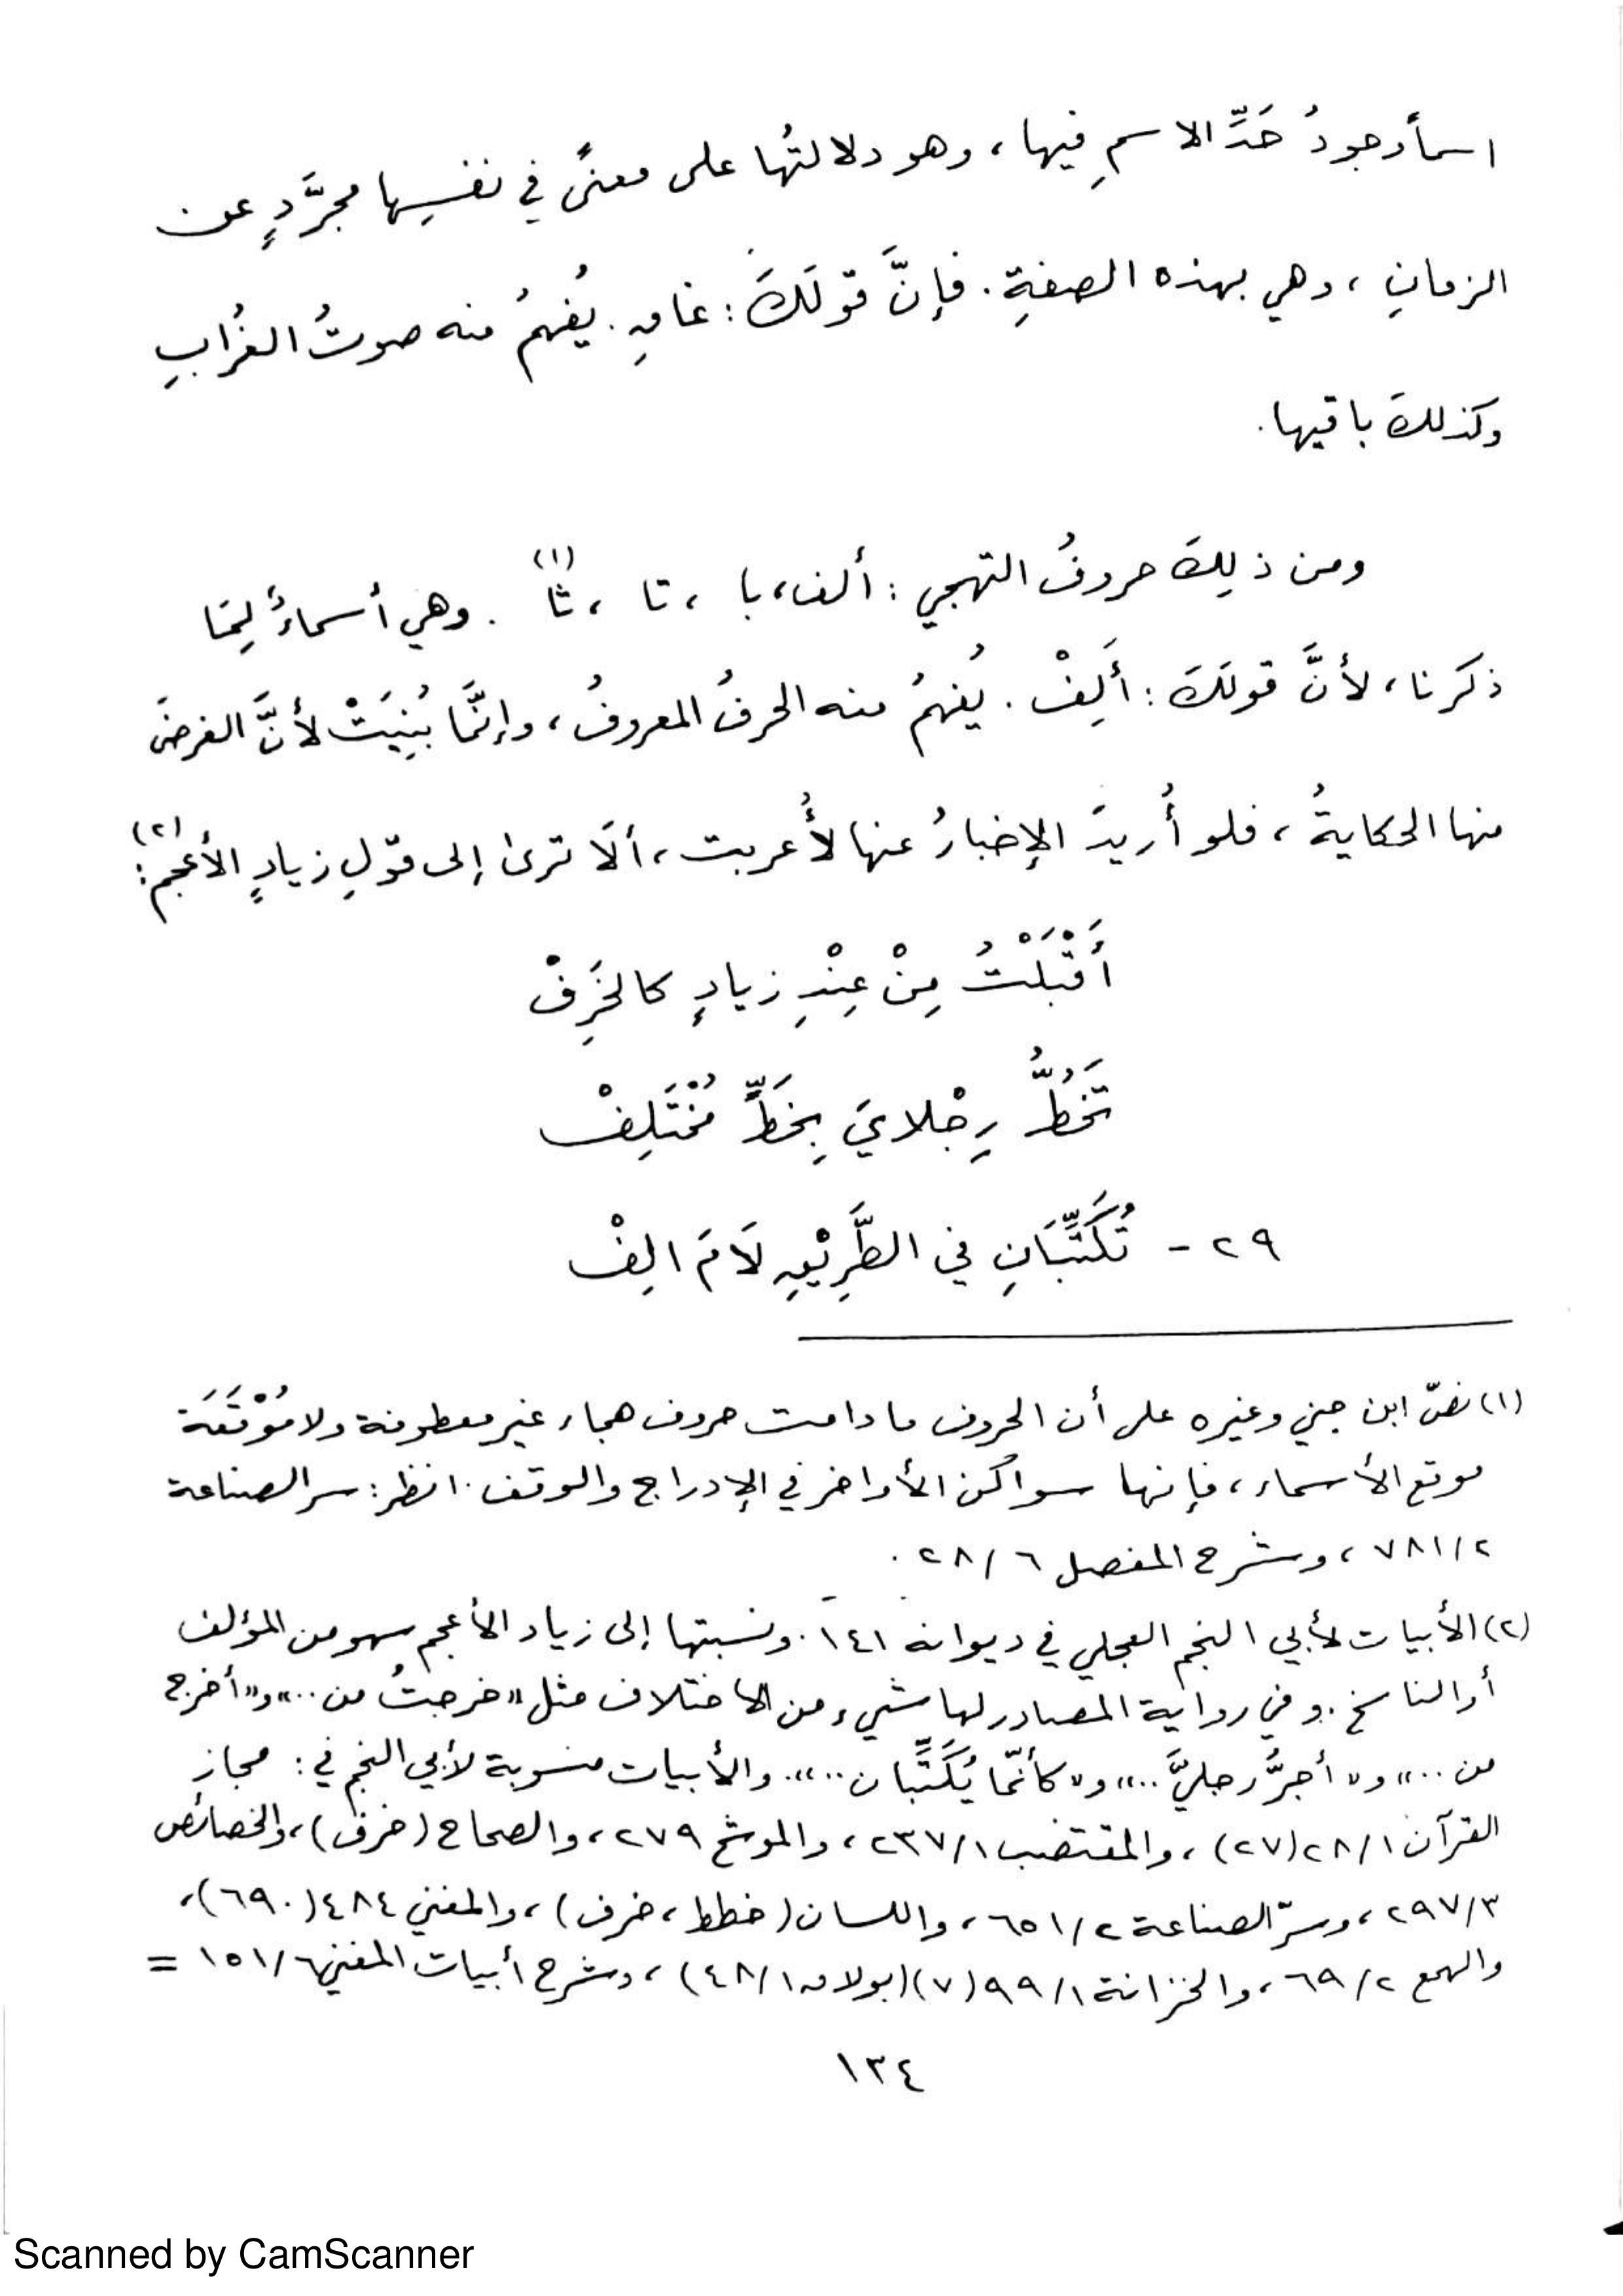 اسماً وجودُ حَدِّ الاسمِ فيها، وهو دلالتُها على معنىً في نفسِها مجرَّدٍ عن
الزمانِ، وهي بهذه الصفةِ. فإنَّ قولَكَ: غاقِ. يُفهمُ منه صوتُ الغُرابِ
وكذلكَ باقيها.
ومن ذلِكَ حروفُ التهجي: ألف، با، تا، ثا(١). وهي أسماءٌ لِمَا
ذكرنا، لأنَّ قولَكَ: أَلِفْ. يُفهمُ منه الحرفُ المعروفُ، وإنَّما بُنِيَتْ لأنَّ الغرضَ
منها الحكايةُ، فلو أُريدَ الإخبارُ عنها لأُعربت، ألَا ترى إلى قوْلِ زيادٍ الأعجمِ(٢):
أَقْبَلْتُ مِنْ عِنْدِ زيادٍ كالخَرِفْ
تَخُطُّ رِجْلايَ بِخَطٍّ مُخْتَلِفْ
٢٩ - تُكَتِّبَانِ في الطَّرِيْقِ لَامَ الِفْ
(١) نصّ ابن جني وغيره على أن الحروف ما دامت حروف هجاء غير معطوفة ولا مُوْقَعَة
موقع الأسماء، فإنها سواكن الأواخر في الإدراج والوقف. انظر: سر الصناعة
٧٨١/٢، وشرح المفصل ٢٨/٦.
(٢) الأبيات لأبي النجم العجلي في ديوانه ١٤١. ونسبتها إلى زياد الأعجم سهو من المؤلف
أو الناسخ. وفي رواية المصادر لها شيء من الاختلاف مثل «خرجتُ من ..» و«أخرج
من ..» و«أجرُّ رجليَّ ..» و«كأنّما يُكَتِّبان ..». والأبيات منسوبة لأبي النجم في: مجاز
القرآن ٢٨/١(٢٧)، والمقتضب ٢٣٧/١، والموشح ٢٧٩، والصحاح (خرف)، والخصائص
٢٩٧/٣، وسرّ الصناعة ٦٥١/٢، واللسان (خطط، خرف)، والمغني ٤٨٤(٦٩٠)،
والهمع ٦٩/٢، والخزانة ٩٩/١(٧)(بولاق ٤٨/١)، وشرح أبيات المغني ١٥١/٦ =
١٣٤
Scanned by CamScanner